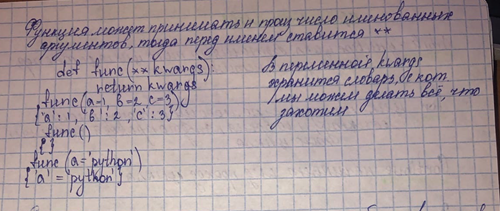 Функция может принимать и проц число именованных
аргументов, тогда перед именем ставится **
def func(**kwargs):
return kwargs
func(a=1, b=2, c=3)
{'a': 1, 'b': 2, 'c': 3}
func()
{ }
func(a='python')
{'a' = 'python'}
В переменной kwargs
хранится словарь, с кот
мы можем делать всё, что
захотим